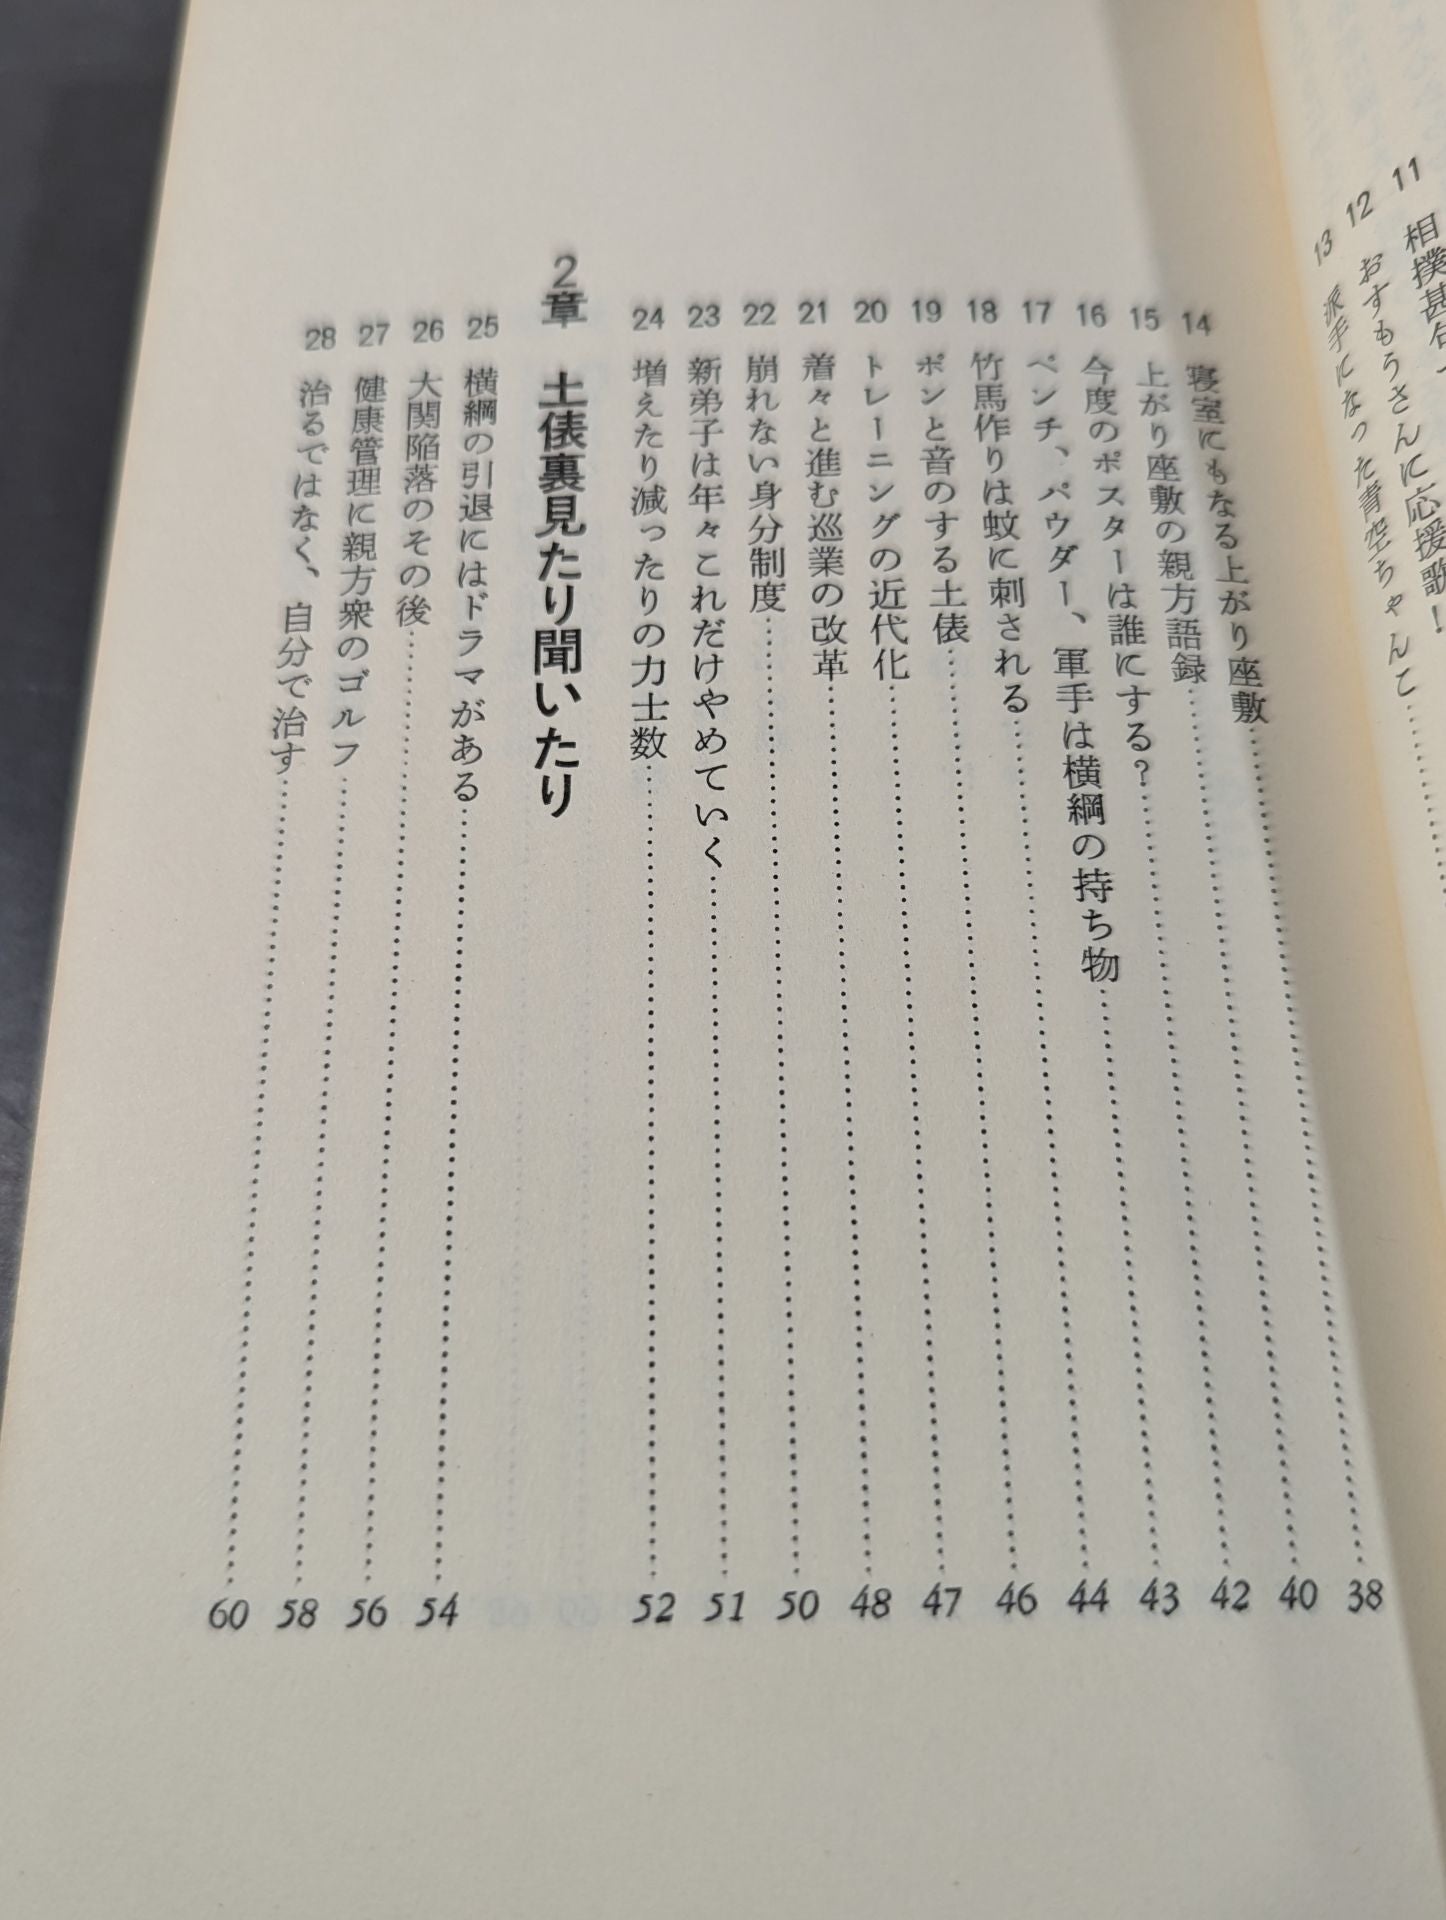 11 相撲甚句、
12 おすもうさんに応援歌！
13 派手になった青空ちゃんこ
14 寝室にもなる上がり座敷 38
15 上がり座敷の親方語録 40
16 今度のポスターは誰にする? 42
17 ペンチ、パウダー、軍手は横綱の持ち物 43
18 竹馬作りは蚊に刺される 44
19 ポンと音のする土俵 46
20 トレーニングの近代化 47
21 着々と進む巡業の改革 48
22 崩れない身分制度 50
23 新弟子は年々これだけやめていく 51
24 増えたり減ったりの力士数 52
2章 土俵裏見たり聞いたり
25 横綱の引退にはドラマがある 54
26 大関陥落のその後 56
27 健康管理に親方衆のゴルフ 58
28 治るではなく、自分で治す 60